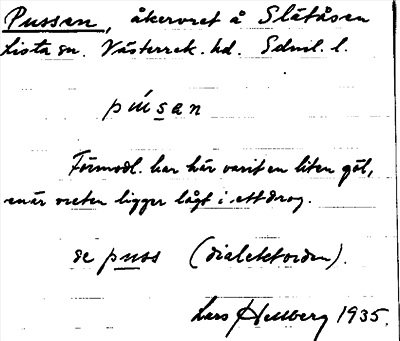 Pussen, åkervret å Slätåsen
Lista sn. Västerrek. hd. Sdml. l.
púsan
Förmodl. har här varit en liten göl,
enär vreten ligger lågt i ett drog.
se puss (dialektorden).
Lars Hellberg 1935.